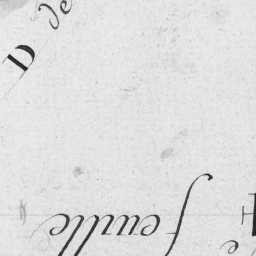 D de
feuille